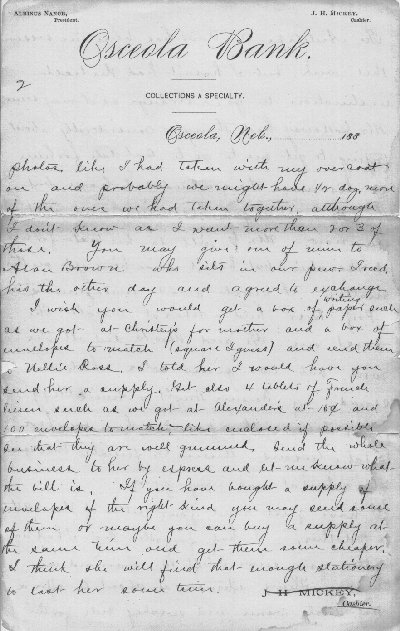 ALBINUS NANCE,
President.
J. H. MICKEY,
Cashier.
Osceola Bank.
2
COLLECTIONS A SPECIALTY.
Osceola, Neb., 188
photos like I had taken with my overcoat
on and probably we might have 1/2 doz. more
of the ones we had taken together, although
I don't know as I want more than 2 or 3 of
those. You may give one of mine to
Alan Brown who sits in our pew. I
his the other day and agreed to exchange
I wish you would get a box of writing paper such
as we got at Christy's for mother and a box of
envelopes to match (square I guess) and send them
to Nellie Ross. I told her I would have you
send her a supply. Get also 4 tablets of French
linen such as we got at Alexanders at 10¢ and
100 envelopes to match like enclosed if possible
see that they are well gummed. Send the whole
business to her by express and let me know what
the bill is. If you have bought a supply of
envelopes of the right kind you may send some
of them or maybe you can buy a supply at
the same time and get them some cheaper.
I think she will find that enough stationery
to last her some time.
J H MICKEY,
Cashier.